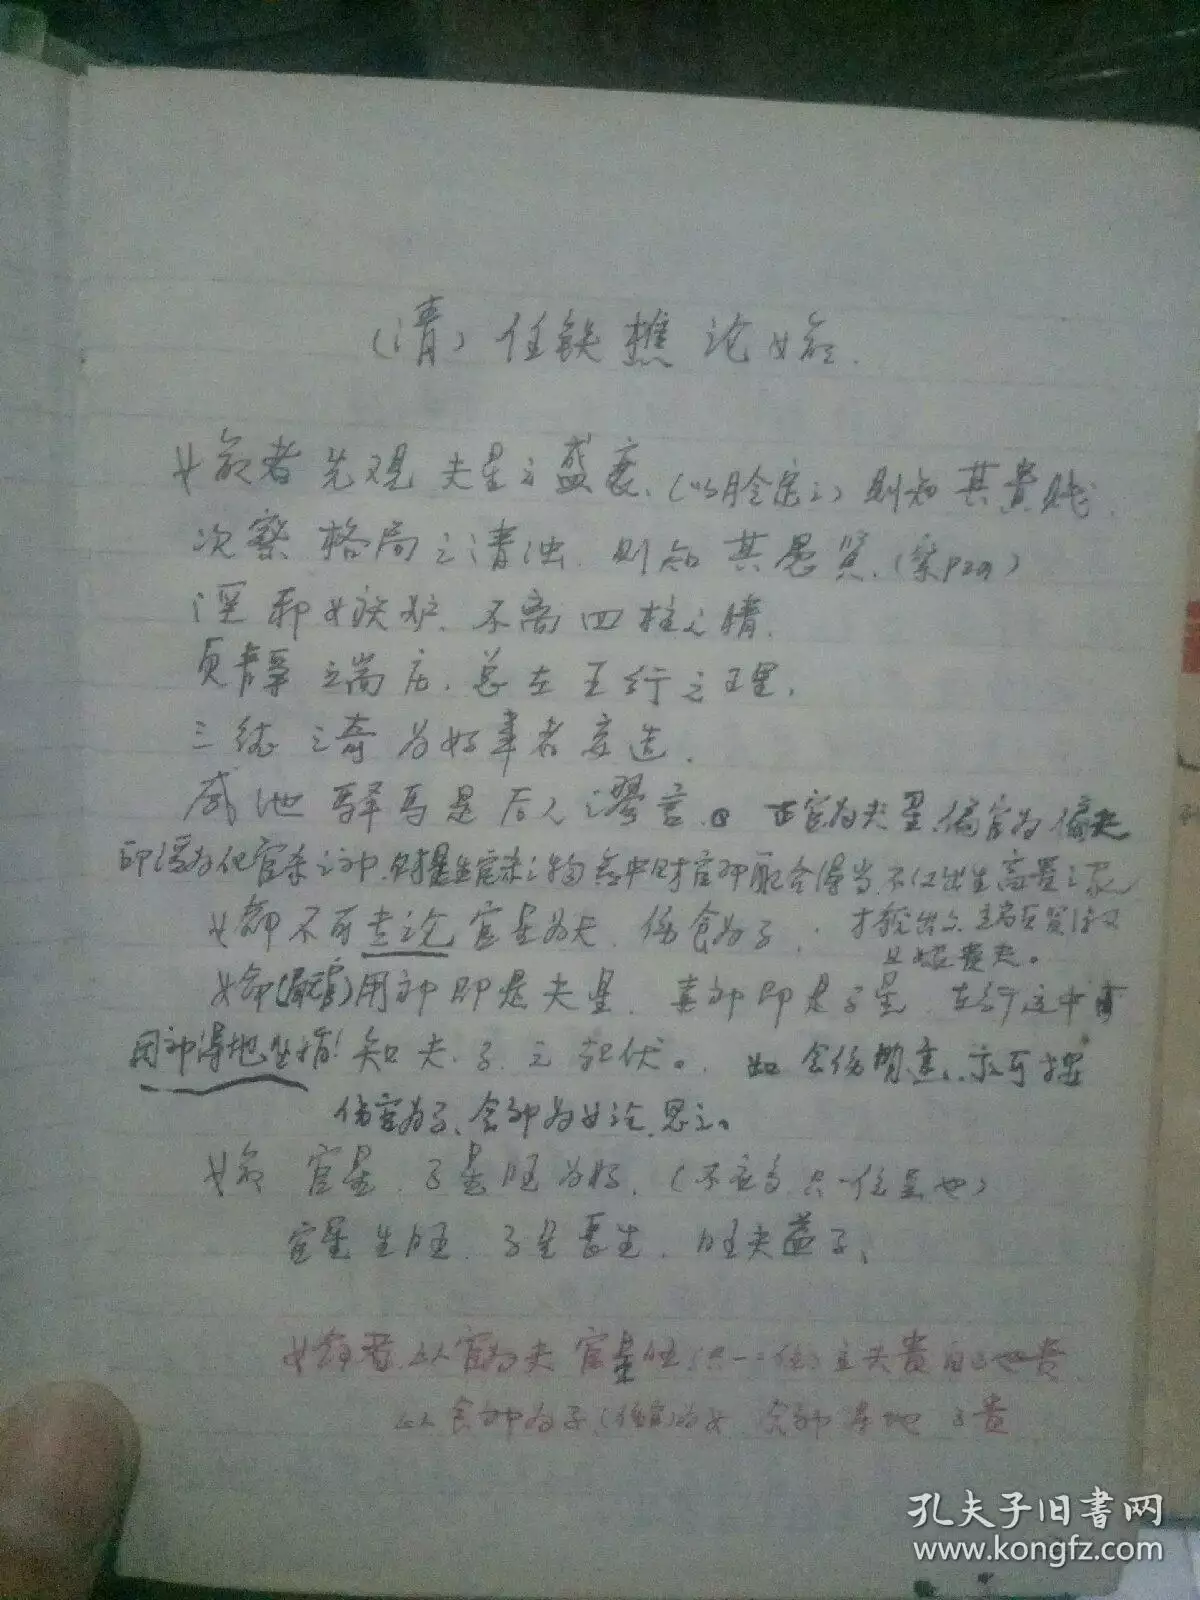 (清)任铁樵论女命.
女命者先观夫星之盛衰、(以月令定之)则知其贵贱.
次察格局之清浊、则知其愚贤、(案P29)
淫邪嫉妒、不离四柱之情.
贞静端庄、总在五行之理.
三德之奇为好事者妄造.
咸池驿马是后人谬言. 正官为夫星,偏官为偏夫
印绶为化官杀之神.财星生官杀之物 命中财官印配合得当.不仅出生高贵之家
女命不可专论官星为夫、伤食为子. 才貌出众.端庄贤淑又
且嫁贵夫。
女命(最宜)用神即是夫星、喜神即是子星、在行运中
用神得地生情!知夫.子之起伏。如食伤
伤官为子、食神为女论.思之。
女命官星.子星旺为好.(不宜多只一位是也)
官星生旺.子星长生.旺夫益子、
女命者.以官为夫官星旺(只一位)主夫贵自己也贵
以食神为子(伤官)为女 食神得地 子贵
孔夫子旧书网
www.kongfz.com